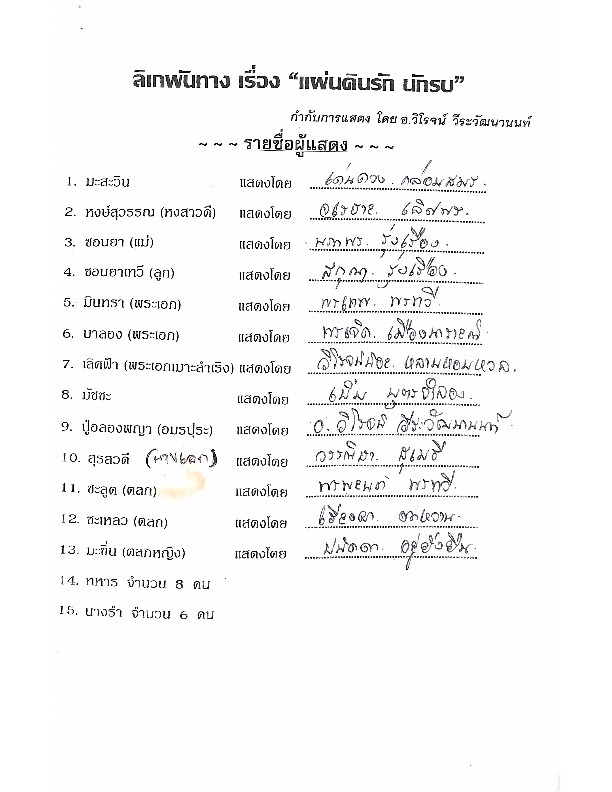 ลิเกพันทาง เรื่อง “แผ่นดินรัก นักรบ”
กำกับการแสดง โดย อ.วิโรจน์ วีระวัฒนานนท์
~ ~ ~ รายชื่อผู้แสดง ~ ~ ~
1. มะสะวิน แสดงโดย เด่นดวง
2. หงษ์สุวรรณ (หงสาวดี) แสดงโดย
3. ชอนยา (แม่) แสดงโดย รุ่งเรือง
4. ชอนยาเทวี (ลูก) แสดงโดย รุ่งเรือง
5. มินทรา (พระเอก) แสดงโดย พรเทพ พรทวี
6. บาลอง (พระเอก) แสดงโดย
7. เลิศฟ้า (พระเอกเมาะลำเริง) แสดงโดย วิโรจน์น้อย หลานหอมหวล
8. มัชชะ แสดงโดย
9. ปู่อลองพญา (อมรปุระ) แสดงโดย อ.วิโรจน์ วีระวัฒนานนท์
10. สุรลวดี (นางเอก) แสดงโดย
11. ชะลูด (ตลก) แสดงโดย พรทวี
12. ชะเหลว (ตลก) แสดงโดย
13. มะขิ่น (ตลกหญิง) แสดงโดย ปนัดดา อยู่ยั่งยืน
14. ทหาร จำนวน 8 คน
15. นางรำ จำนวน 6 คน